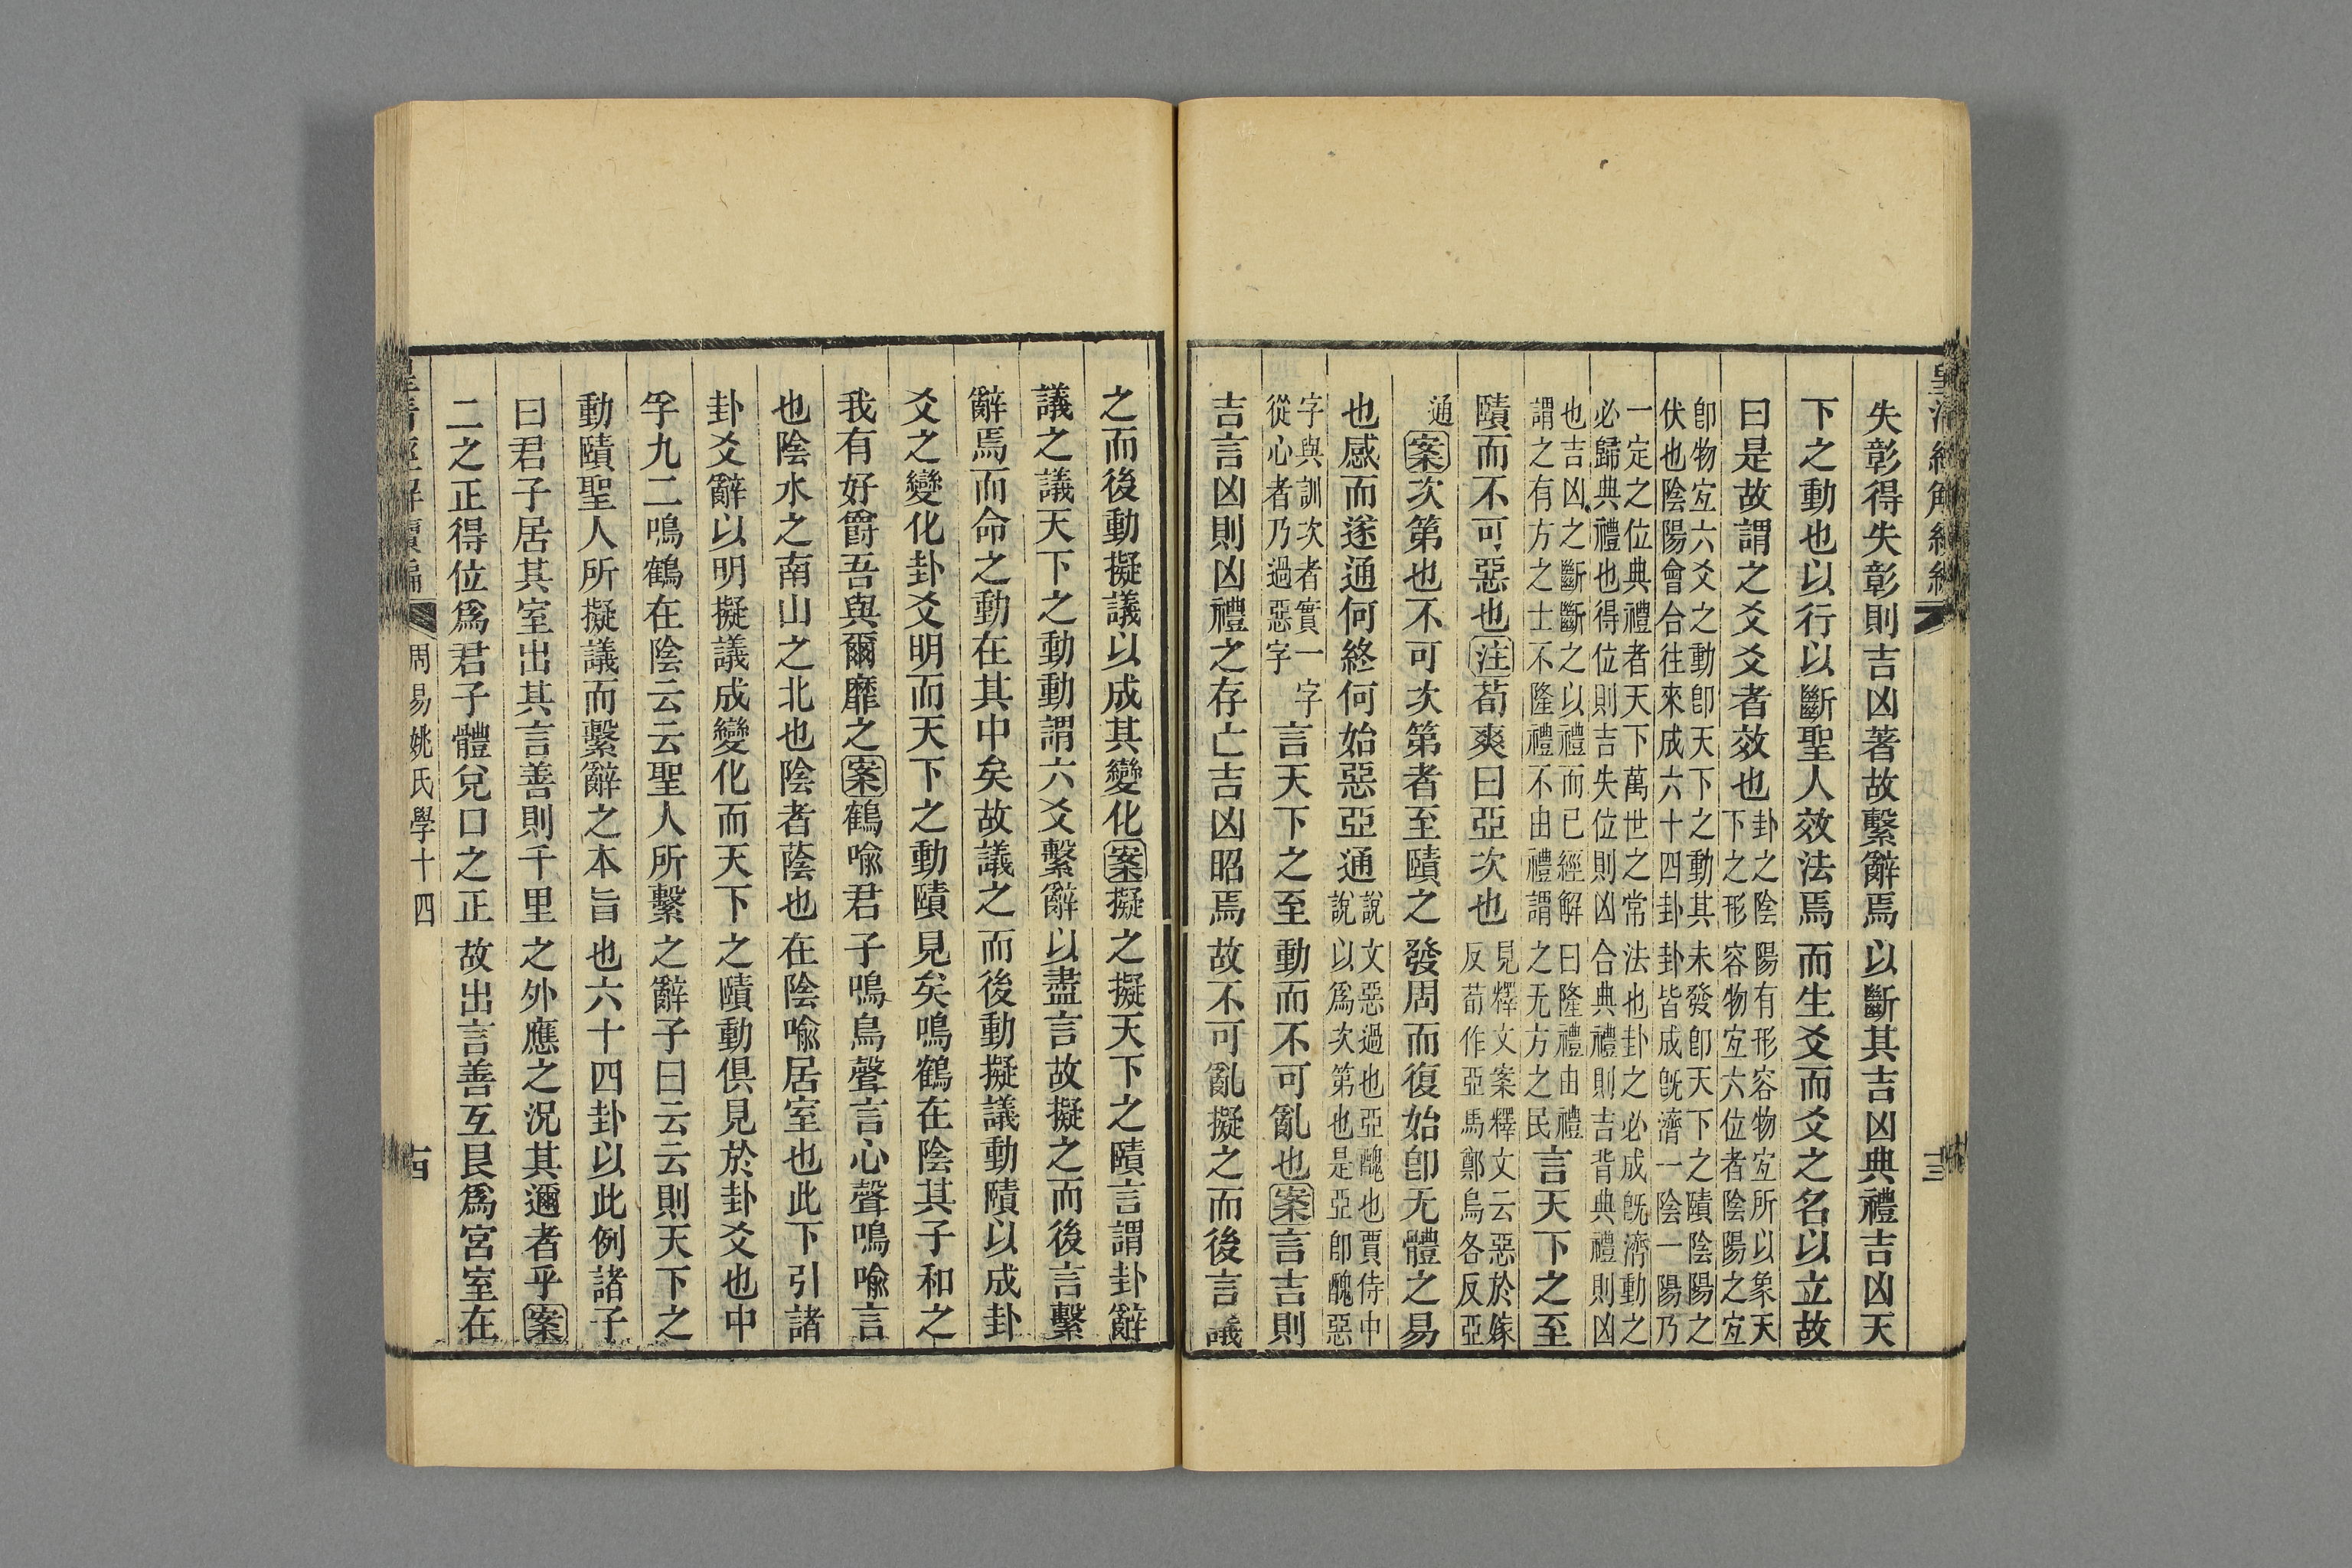 皇清經解續編
十三
失彰得失彰則吉凶著故繫辭焉以斷其吉凶典禮吉凶天
下之動也以行以斷聖人效法焉而生爻而爻之名以立故
曰是故謂之爻爻者效也
卦之陰陽有形容物宐所以象天
下之形容物宐六位者陰陽之宐
卽物宐六爻之動卽天下之動其未發卽天下之賾陰陽之
伏也陰陽會合往來成六十四卦卦皆成旣濟一陰一陽乃
一定之位典禮者天下萬世之常法也卦之必成旣濟動之
必歸典禮也得位則吉失位則凶合典禮則吉背典禮則凶
也吉凶之斷斷之以禮而已經解曰隆禮由禮
謂之有方之士不隆禮不由禮謂之无方之民
言天下之至
賾而不可惡也注荀爽曰亞次也
見釋文案釋文云惡於嫁
反荀作亞馬鄭烏各反亞
通
案次第也不可次第者至賾之發周而復始卽无體之易
也感而遂通何終何始惡亞通
說文惡過也亞醜也賈侍中
說以爲次第也是亞卽醜惡
字與訓次者實一字
從心者乃過惡字
言天下之至動而不可亂也案言吉則
吉言凶則凶禮之存亡吉凶昭焉故不可亂擬之而後言議
之而後動擬議以成其變化案擬之擬天下之賾言謂卦辭
議之議天下之動動謂六爻繫辭以盡言故擬之而後言繫
辭焉而命之動在其中矣故議之而後動擬議動賾以成卦
爻之變化卦爻明而天下之動賾見矣鳴鶴在陰其子和之
我有好爵吾與爾靡之案鶴喩君子鳴鳥聲言心聲鳴喩言
也陰水之南山之北也陰者蔭也在陰喩居室也此下引諸
卦爻辭以明擬議成變化而天下之賾動俱見於卦爻也中
孚九二鳴鶴在陰云云聖人所繫之辭子曰云云則天下之
動賾聖人所擬議而繫辭之本旨也六十四卦以此例諸子
曰君子居其室出其言善則千里之外應之況其邇者乎案
二之正得位爲君子體兌口之正故出言善互艮爲宮室在
皇清經解續編
周易姚氏學十四
古